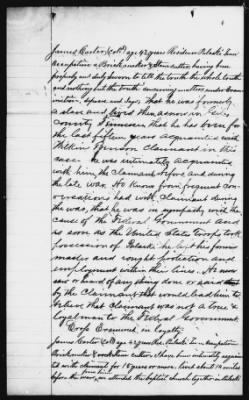 James Carter, Col'd age 42 years Residence Pulaski Tenn
Occupation a Brickmaker & Stone cutter, having been
properly and duly sworn to tell the truth the whole truth
and nothing but the truth concerning matters under Exam-
ination, deposes and says, That he was formerly
a slave and lives then as now in Giles
County Tennessee. That he has been for
the last fifteen years acquainted with
Claimant in this
case. He was intimately acquainted
with him, the Claimant before and during
the late war. He knows from frequent con-
versations had with Claimant during
the war, that he was in sympathy with the
cause of the Federal Government and
as soon as the United States troops took
possession of Pulaski he left his former
master and sought protection and
employment within their lines. He never
saw or heard of any thing done or said
by the Claimant that would lead him to
believe that claimant was not a true &
loyal man to the Federal Government
Cross Examined on loyalty
James Carter Col'd age 42 years Res. Pulaski Tenn occupation
Brickmaker & cutter. I have been intimately acquain-
ted with claimant for 15 years or more. lived about 10 miles
from him
before the war, we attended the baptist church together in Pulaski